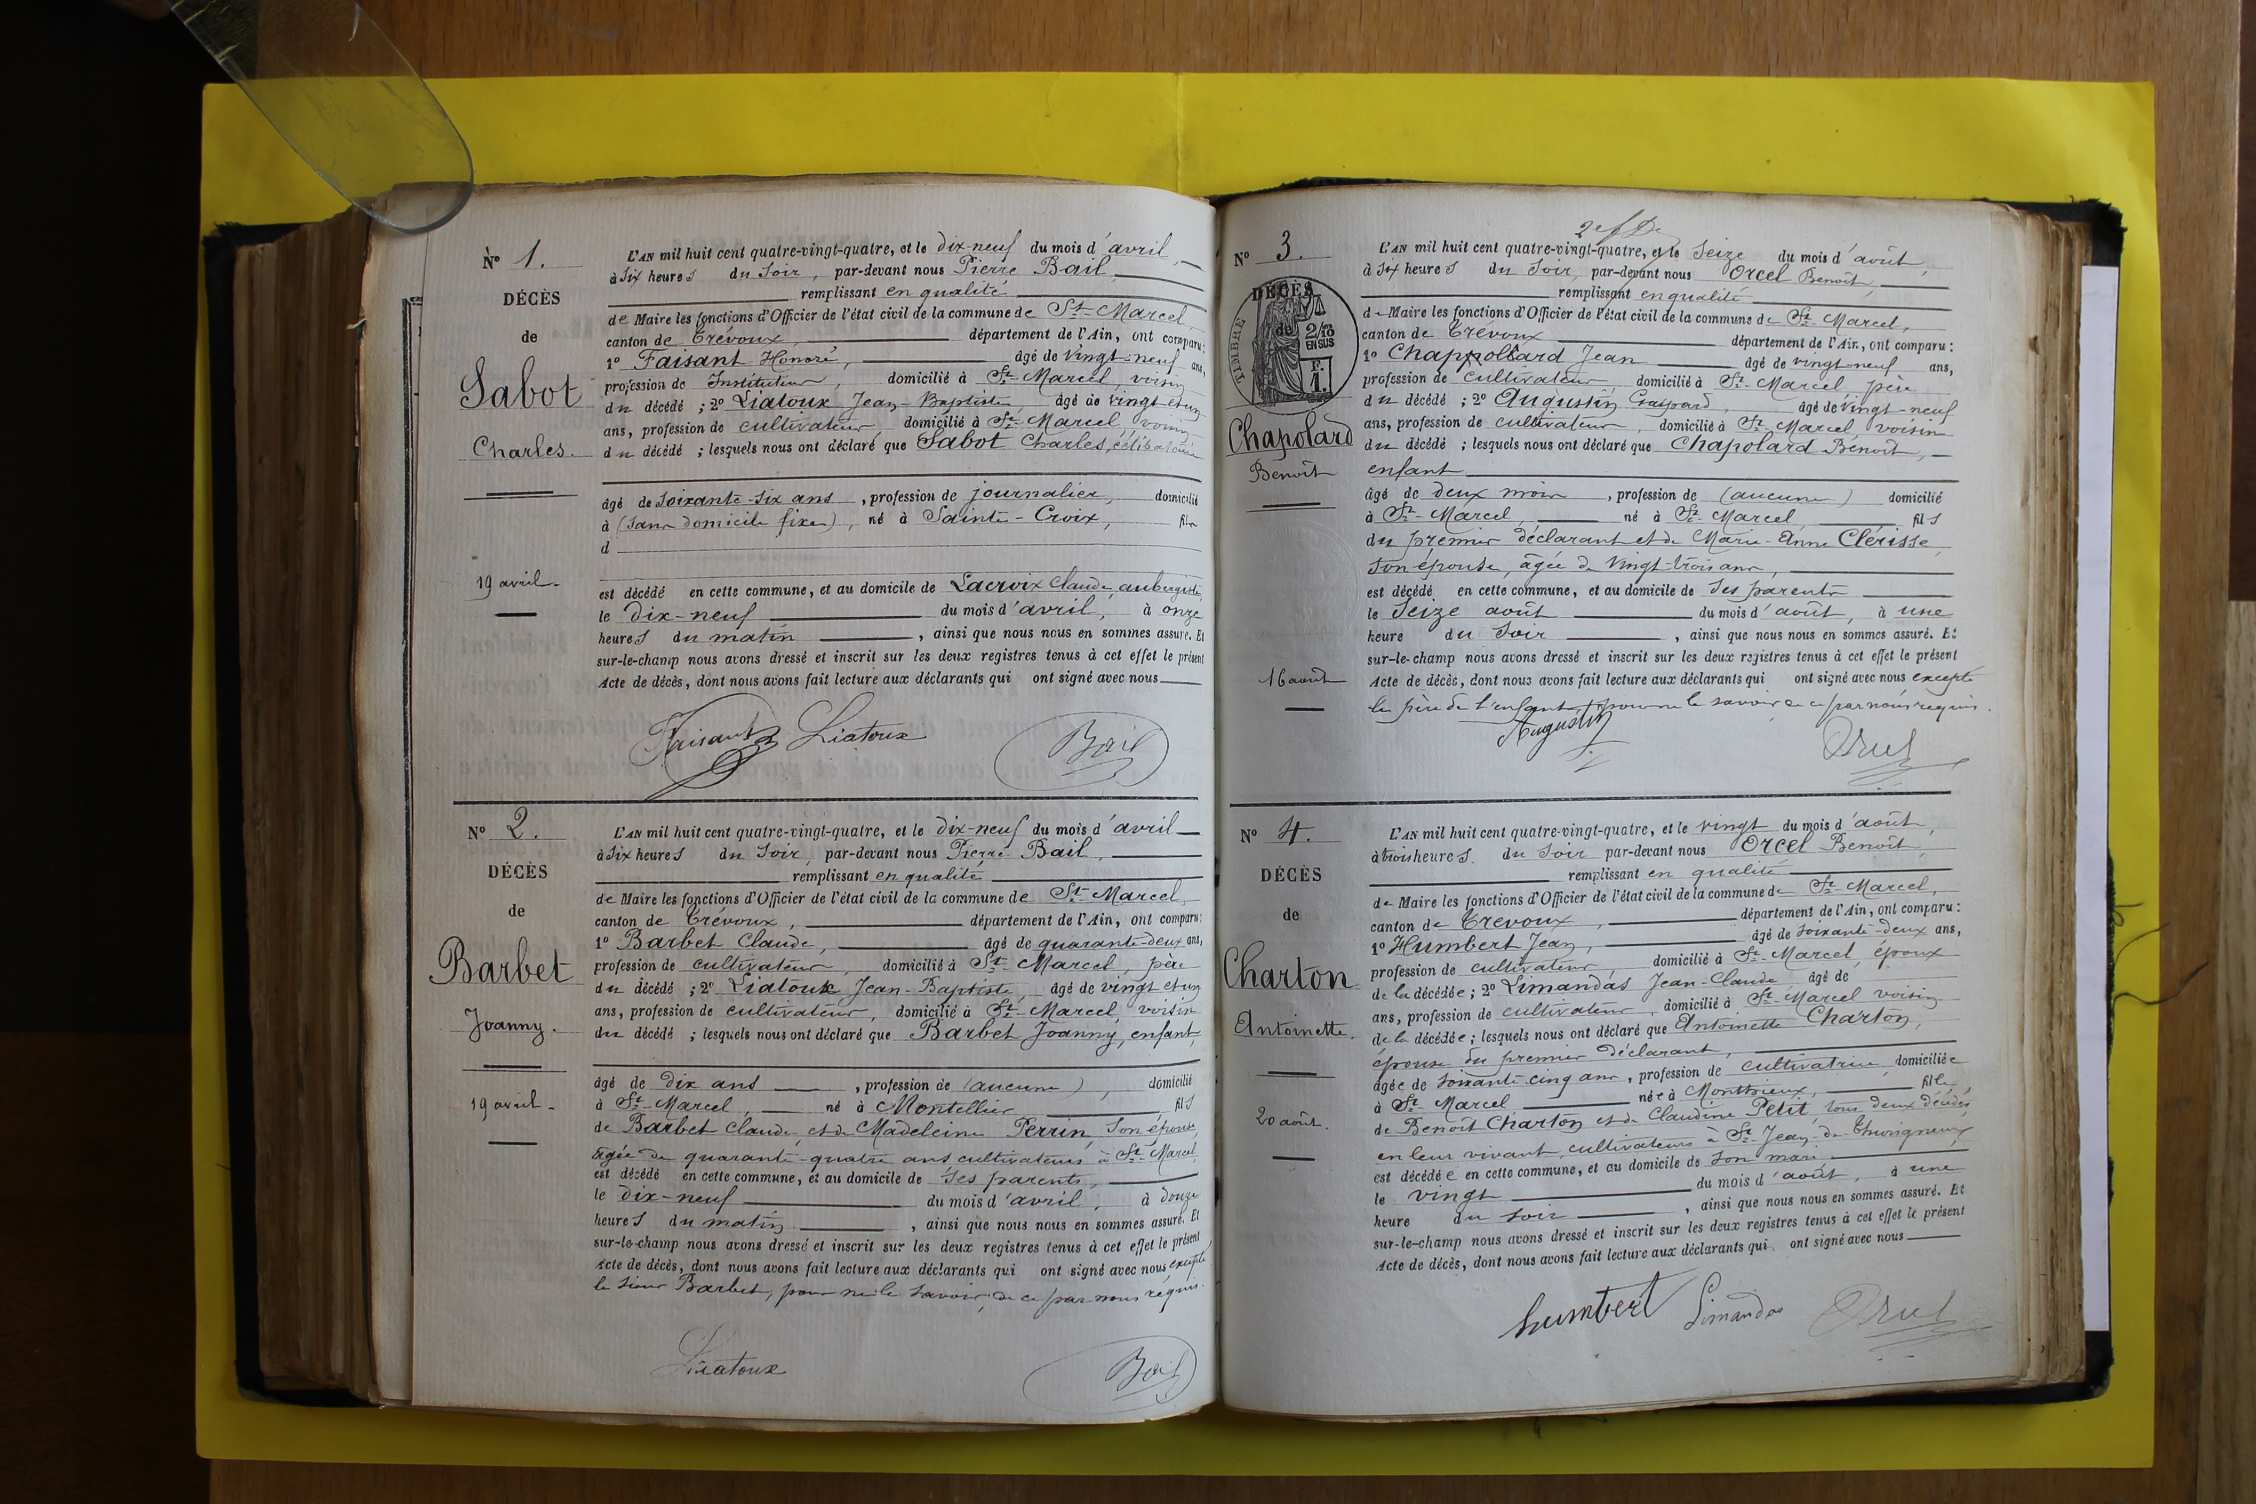 N° 1.
DÉCÈS
de
Sabot
Charles.
19 avril.
L'AN mil huit cent quatre-vingt-quatre, et le dix-neuf du mois d'avril,
à Six heures du Soir, par-devant nous Pierre Bail,
remplissant en qualité
de Maire les fonctions d'Officier de l'état civil de la commune de St Marcel,
canton de Trévoux, département de l'Ain, ont comparu:
1° Faisant Honoré, âgé de Vingt-neuf ans,
profession de Instituteur, domicilié à St Marcel, voisin
du décédé ; 2° Liatoux Jean-Baptiste âgé de vingt et un
ans, profession de cultivateur domicilié à St Marcel, voisin
du décédé ; lesquels nous ont déclaré que Sabot Charles, célibataire
âgé de Soixante-six ans, profession de journalier, domicilié
à (sans domicile fixe), né à Sainte-Croix, fils
d
est décédé en cette commune, et au domicile de Lacroix Claude, aubergiste,
le dix-neuf du mois d'avril, à onze
heures du matin, ainsi que nous nous en sommes assuré. Et
sur-le-champ nous avons dressé et inscrit sur les deux registres tenus à cet effet le présent
Acte de décès, dont nous avons fait lecture aux déclarants qui ont signé avec nous
Faisant Liatoux Bail
N° 2.
DÉCÈS
de
Barbet
Joanny.
19 avril.
L'AN mil huit cent quatre-vingt-quatre, et le dix-neuf du mois d'avril
à Six heures du Soir, par-devant nous Pierre Bail,
remplissant en qualité
de Maire les fonctions d'Officier de l'état civil de la commune de St Marcel,
canton de Trévoux, département de l'Ain, ont comparu:
1° Barbet Claude, âgé de quarante-deux ans,
profession de cultivateur, domicilié à St Marcel, père
du décédé ; 2° Liatoux Jean-Baptiste, âgé de vingt et un
ans, profession de cultivateur, domicilié à St Marcel, voisin
du décédé ; lesquels nous ont déclaré que Barbet Joanny, enfant,
âgé de Dix ans, profession de (aucune), domicilié
à St Marcel, né à Montellier, fils
de Barbet Claude, et de Madeleine Perrin, Son épouse,
âgée de quarante-quatre ans cultivateurs à St Marcel,
est décédé en cette commune, et au domicile de Ses parents,
le dix-neuf du mois d'avril, à douze
heures du matin, ainsi que nous nous en sommes assuré. Et
sur-le-champ nous avons dressé et inscrit sur les deux registres tenus à cet effet le présent
Acte de décès, dont nous avons fait lecture aux déclarants qui ont signé avec nous excepté
le sieur Barbet, pour ne le savoir, de ce par nous réquis.
Liatoux Bail
N° 3.
DÉCÈS
de
TIMBRE
2/10
EN SUS
F.
1.
Chapolard
Benoît
16 août
L'AN mil huit cent quatre-vingt-quatre, et le Seize du mois d'août,
à Six heures du Soir, par-devant nous Orcel Benoît,
remplissant en qualité
de Maire les fonctions d'Officier de l'état civil de la commune de St Marcel,
canton de Trévoux département de l'Ain, ont comparu:
1° Chappollard Jean âgé de vingt neuf ans,
profession de cultivateur, domicilié à St Marcel, père
du décédé ; 2° Augustin Gaspard, âgé de vingt-neuf
ans, profession de cultivateur, domicilié à St Marcel voisin
du décédé ; lesquels nous ont déclaré que Chapolard Bénoît,
enfant
âgé de deux mois, profession de (aucune) domicilié
à St Marcel, né à St Marcel, fils
du premier déclarant et de Marie-Anne Clérisse,
Son épouse, âgée de Vingt-trois ans,
est décédé en cette commune, et au domicile de Ses parents
le Seize août du mois d'août, à une
heure du Soir, ainsi que nous nous en sommes assuré. Et
sur-le-champ nous avons dressé et inscrit sur les deux registres tenus à cet effet le présent
Acte de décès, dont nous avons fait lecture aux déclarants qui ont signé avec nous excepté
le père de l'enfant, pour ne le savoir de ce par nous requis.
Augustin Orcel
N° 4.
DÉCÈS
de
Charton
Antoinette.
20 août.
L'AN mil huit cent quatre-vingt-quatre, et le vingt du mois d'août,
à trois heures. du Soir par-devant nous Orcel Benoît,
remplissant en qualité
de Maire les fonctions d'Officier de l'état civil de la commune de St Marcel,
canton de Trévoux, département de l'Ain, ont comparu:
1° Humbert Jean, âgé de soixante-deux ans,
profession de cultivateur, domicilié à St Marcel, époux
de la décédée ; 2° Limandas Jean-Claude âgé de
ans, profession de cultivateur, domicilié à St Marcel voisin
de la décédée ; lesquels nous ont déclaré que Antoinette Charton,
épouse du premier déclarant,
âgée de soixante-cinq ans, profession de cultivatrice, domiciliée
à St Marcel née à Monthieux, fille
de Benoît Charton et de Claudine Petit, tous deux décédés,
en leur vivant, cultivateurs à St Jean-de Thurigneux
est décédée en cette commune, et au domicile de son mari
le vingt du mois d'août, à une
heure du soir, ainsi que nous nous en sommes assuré. Et
sur-le-champ nous avons dressé et inscrit sur les deux registres tenus à cet effet le présent
Acte de décès, dont nous avons fait lecture aux déclarants qui ont signé avec nous
humbert Limandas Orcel